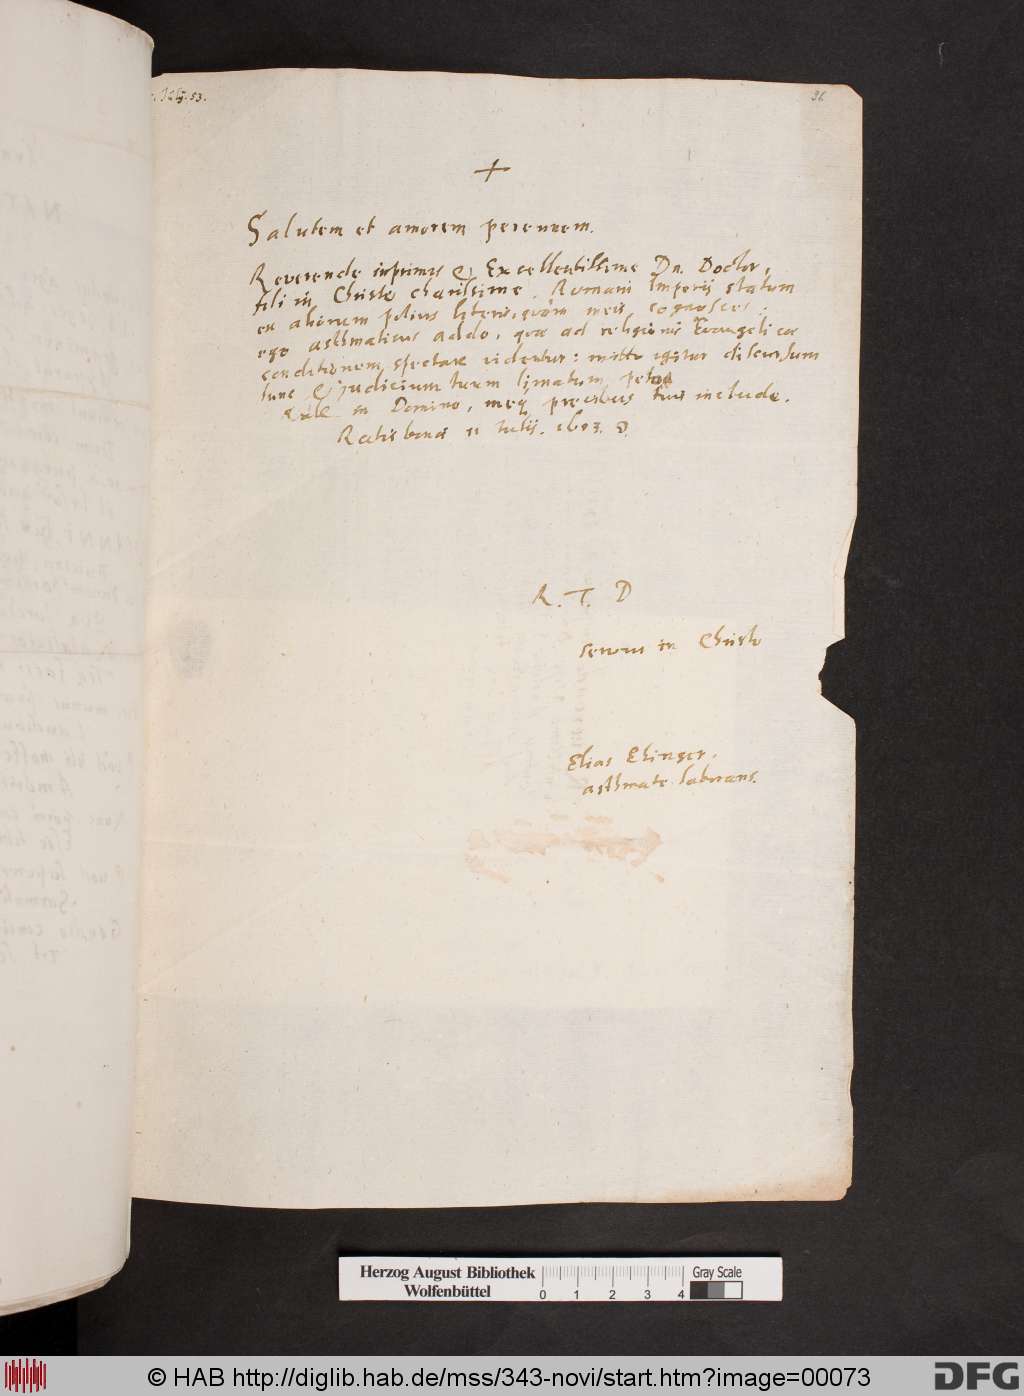 Julÿ. 53.
36
+
Salutem et amorem perennem.
Reverende inprimis & Excellentissime Dn. Doctor,
fili in Christo charissime. Romani Imperij statum
ex aliorum potius literis, quàm meis cognosces:
ego asthmaticus addo, quæ ad religionis Evangelicæ
conditionem spectare videntur: mitto igitur discursum
tunc & judicium tuum limatum peto
Vale in Domino, meq₃ precibus tuis include.
Ratisbonæ 11 Julij. 1653.
R. T. D
servus in Christo
Elias Ehinger.
asthmate laborans.
Herzog August Bibliothek
Wolfenbüttel
0 1 2 3 4
Gray Scale
© HAB http://diglib.hab.de/mss/343-novi/start.htm?image=00073
DFG